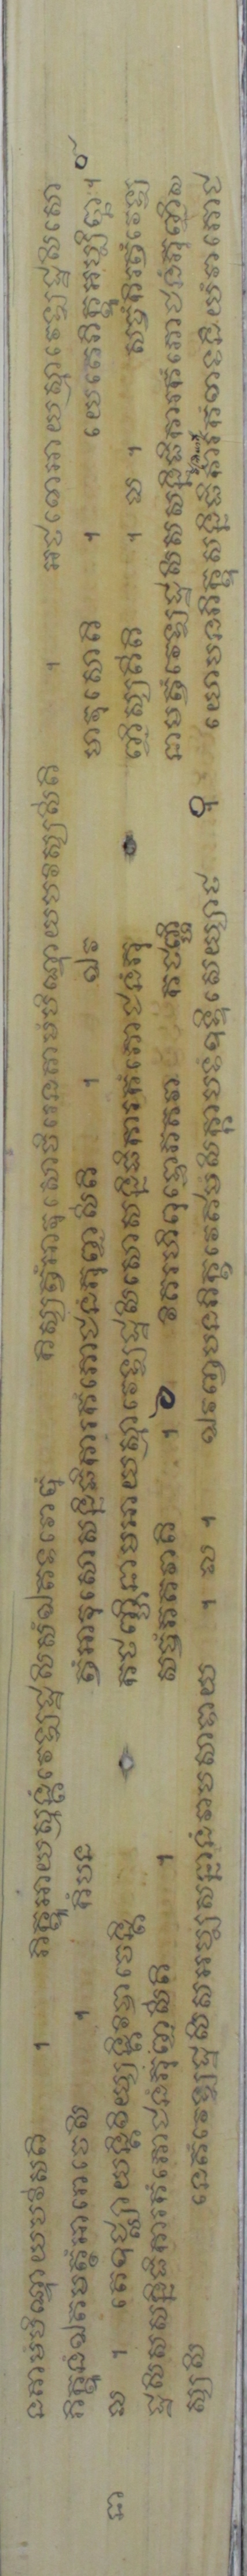 នគាមំបិណ្ឌាយបវិសតិ ។ ភិក្ខូអាយស្មន្តំវេឡដ្ឋសិសំឯតទវោចុំ កិស្សត្វំអាវុសោចិរេនគាមំបិណ្ឌាយបវិស្សសីតិ ។ អថខោអាយស្មាវេឡដ្ឋសិសោ
ភិក្ខូនំឯតមត្ថំអារោចេសិ ។ កិំបន ត្វំអាវុសោសន្និធិការកំភោជនំភុញ្ជសីតិ ។ ឯវ មាវុសោតិ ។ យេតេភិក្ខូអប្បិច្ឆា ។
ធា ល ។ តេឧជ្ឈាយន្តិខិយ្យន្តិវិបាចេន្តិ កថញ្ហិនាមអាយស្មាវេឡដ្ឋសិសោសន្និធិការកំភោជនំភុ ញ្ជិស្សតីតិ ។ ល ។ សច្ចំកិរត្វំវេឡ
ដ្ឋសិសសន្និធិការកំភោជនំភុញ្ជសីតិ ។ សច្ចំភគវាតិ ។ វិគរហិពុទ្ធោភគវា កថញ្ហិ នាមត្វំវេឡដ្ឋសិសសន្និធិការកំភោជនំភុញ្ជិស
ស្សសិ នេតំវេឡដ្ឋសិសអប្បសន្នានំវាបសាទាយ ។ ល ។ ឯវញ្ចបនភិក្ខវេឥមំសិក្ខាបទំឧទ្ទិសេយ្យាថ ។ យោបនភិក្ខុសន្និធិការកំខាទនិយំវាភោជ